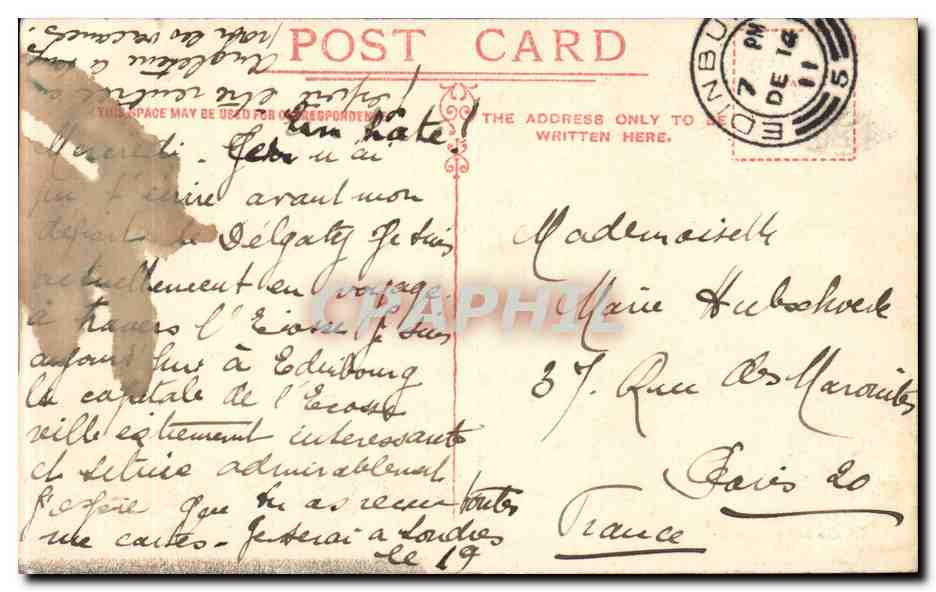 POST CARD
THIS SPACE MAY BE USED FOR CORRESPONDENCE
THE ADDRESS ONLY TO BE
WRITTEN HERE.
EDINBU
7 PM
DE 14
11
5
en hâte!
Mercredi - Je n'ai
pu t'écrire avant mon
départ de Délgaty Je suis
actuellement en voyage
à travers l'Ecosse Je suis
aujourd'hui à Edinbourg
la capitale de l'Ecosse
ville extrement interessante
et située admirablement
J'espère que tu as reçu toutes
me cartes - Je serai a Londres
le 19
J'espère être rentrée en
Angleterre
pour les vacances.
Mademoiselle
Marie
37. Rue des Maronites
Paris 20
France
CPAPHIL